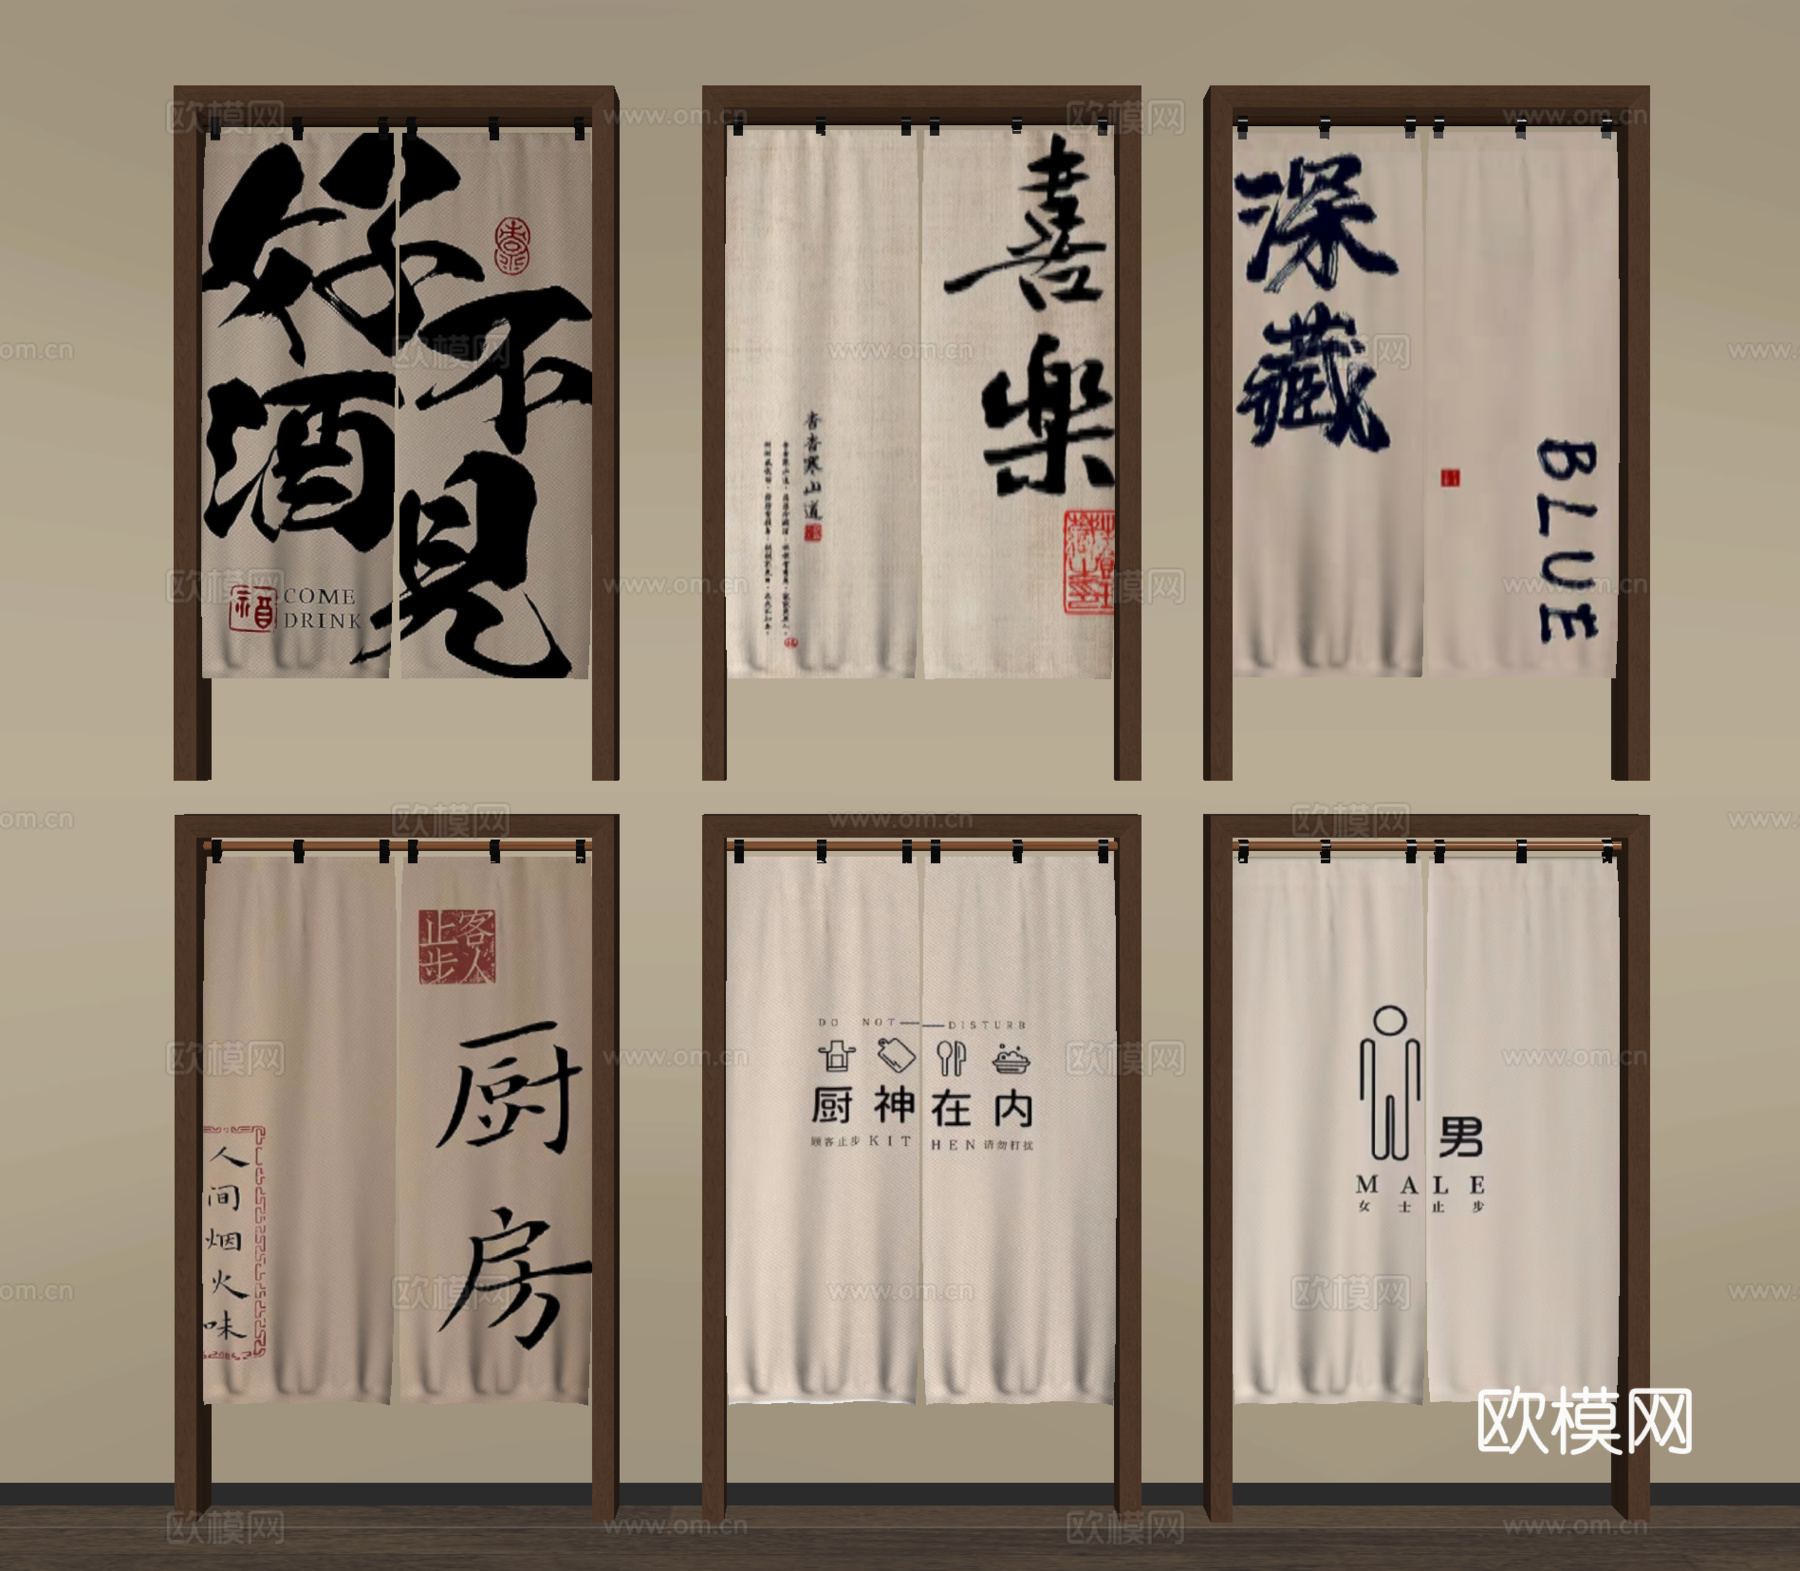 好
酒
不
見
COME
DRINK
喜
樂
杳杳寒山道
深
藏
BLUE
客人
止步
厨
房
人间烟火味
DO NOT DISTURB
厨神在内
顾客止步 KIT HEN 请勿打扰
男
MALE
女士止步
欧模网
www.om.cn